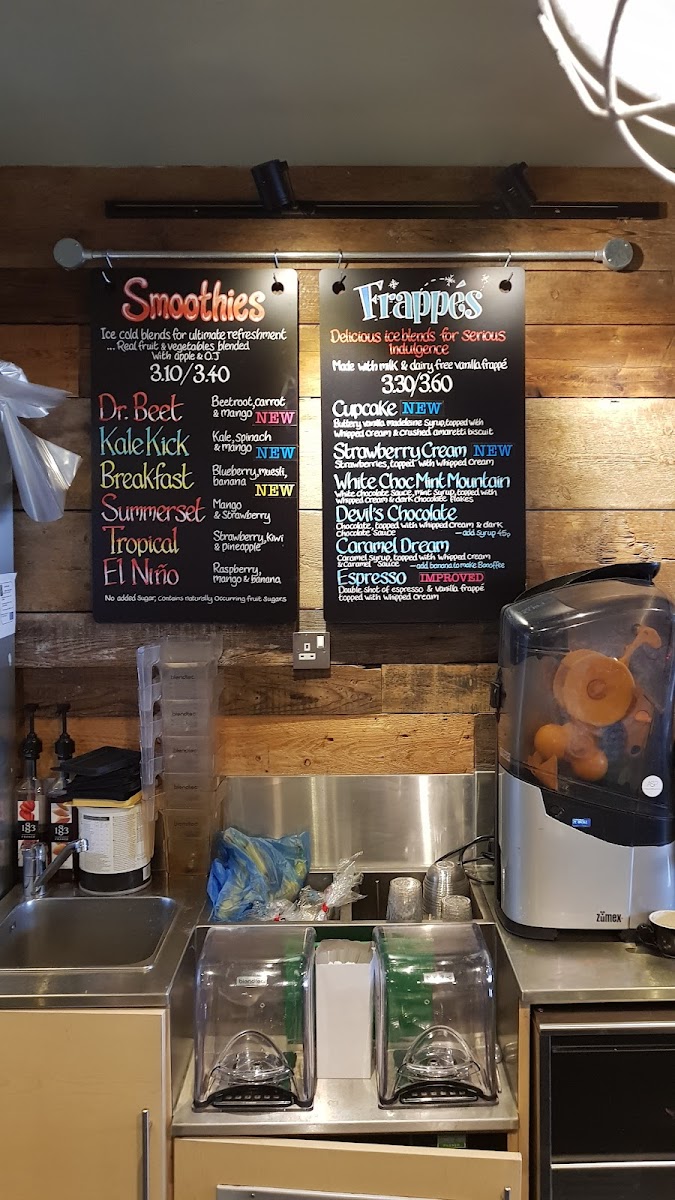 Smoothies
Ice cold blends for ultimate refreshment
... Real fruit & vegetables blended
With apple & O.J
3.10/3.40
Dr. Beet
Beetroot, carrot
& mango NEW
Kale Kick
Kale, Spinach
& mango NEW
Breakfast
Blueberry, muesli,
banana NEW
Summerset
Mango
& Strawberry
Tropical
Strawberry, kiwi
& pineapple
El Niño
Raspberry,
mango & banana
No added Sugar; Contains naturally Occurring fruit Sugars
Frappes
Delicious ice blends for Serious
Indulgence
Made with milk & dairy free vanilla frappé
3.30/3.60
Cupcake NEW
Buttery vanilla madeleine Syrup, topped with
Whipped Cream & crushed amaretti biscuit
Strawberry Cream NEW
Strawberries, topped with Whipped Cream
White Choc Mint Mountain
White chocolate Sauce, mint Syrup, topped with
Whipped Cream & dark chocolate flakes
Devil's Chocolate
Chocolate, topped with Whipped Cream & dark
Chocolate Sauce — add syrup 45p
Caramel Dream
Caramel Syrup, topped with Whipped Cream
& Caramel Sauce — add banana to make Banoffee
Espresso IMPROVED
Double Shot of espresso & Vanilla frappé
topped with Whipped Cream
blendtec
blendtec
blendtec
blendtec
183
183
zumex
blendtec